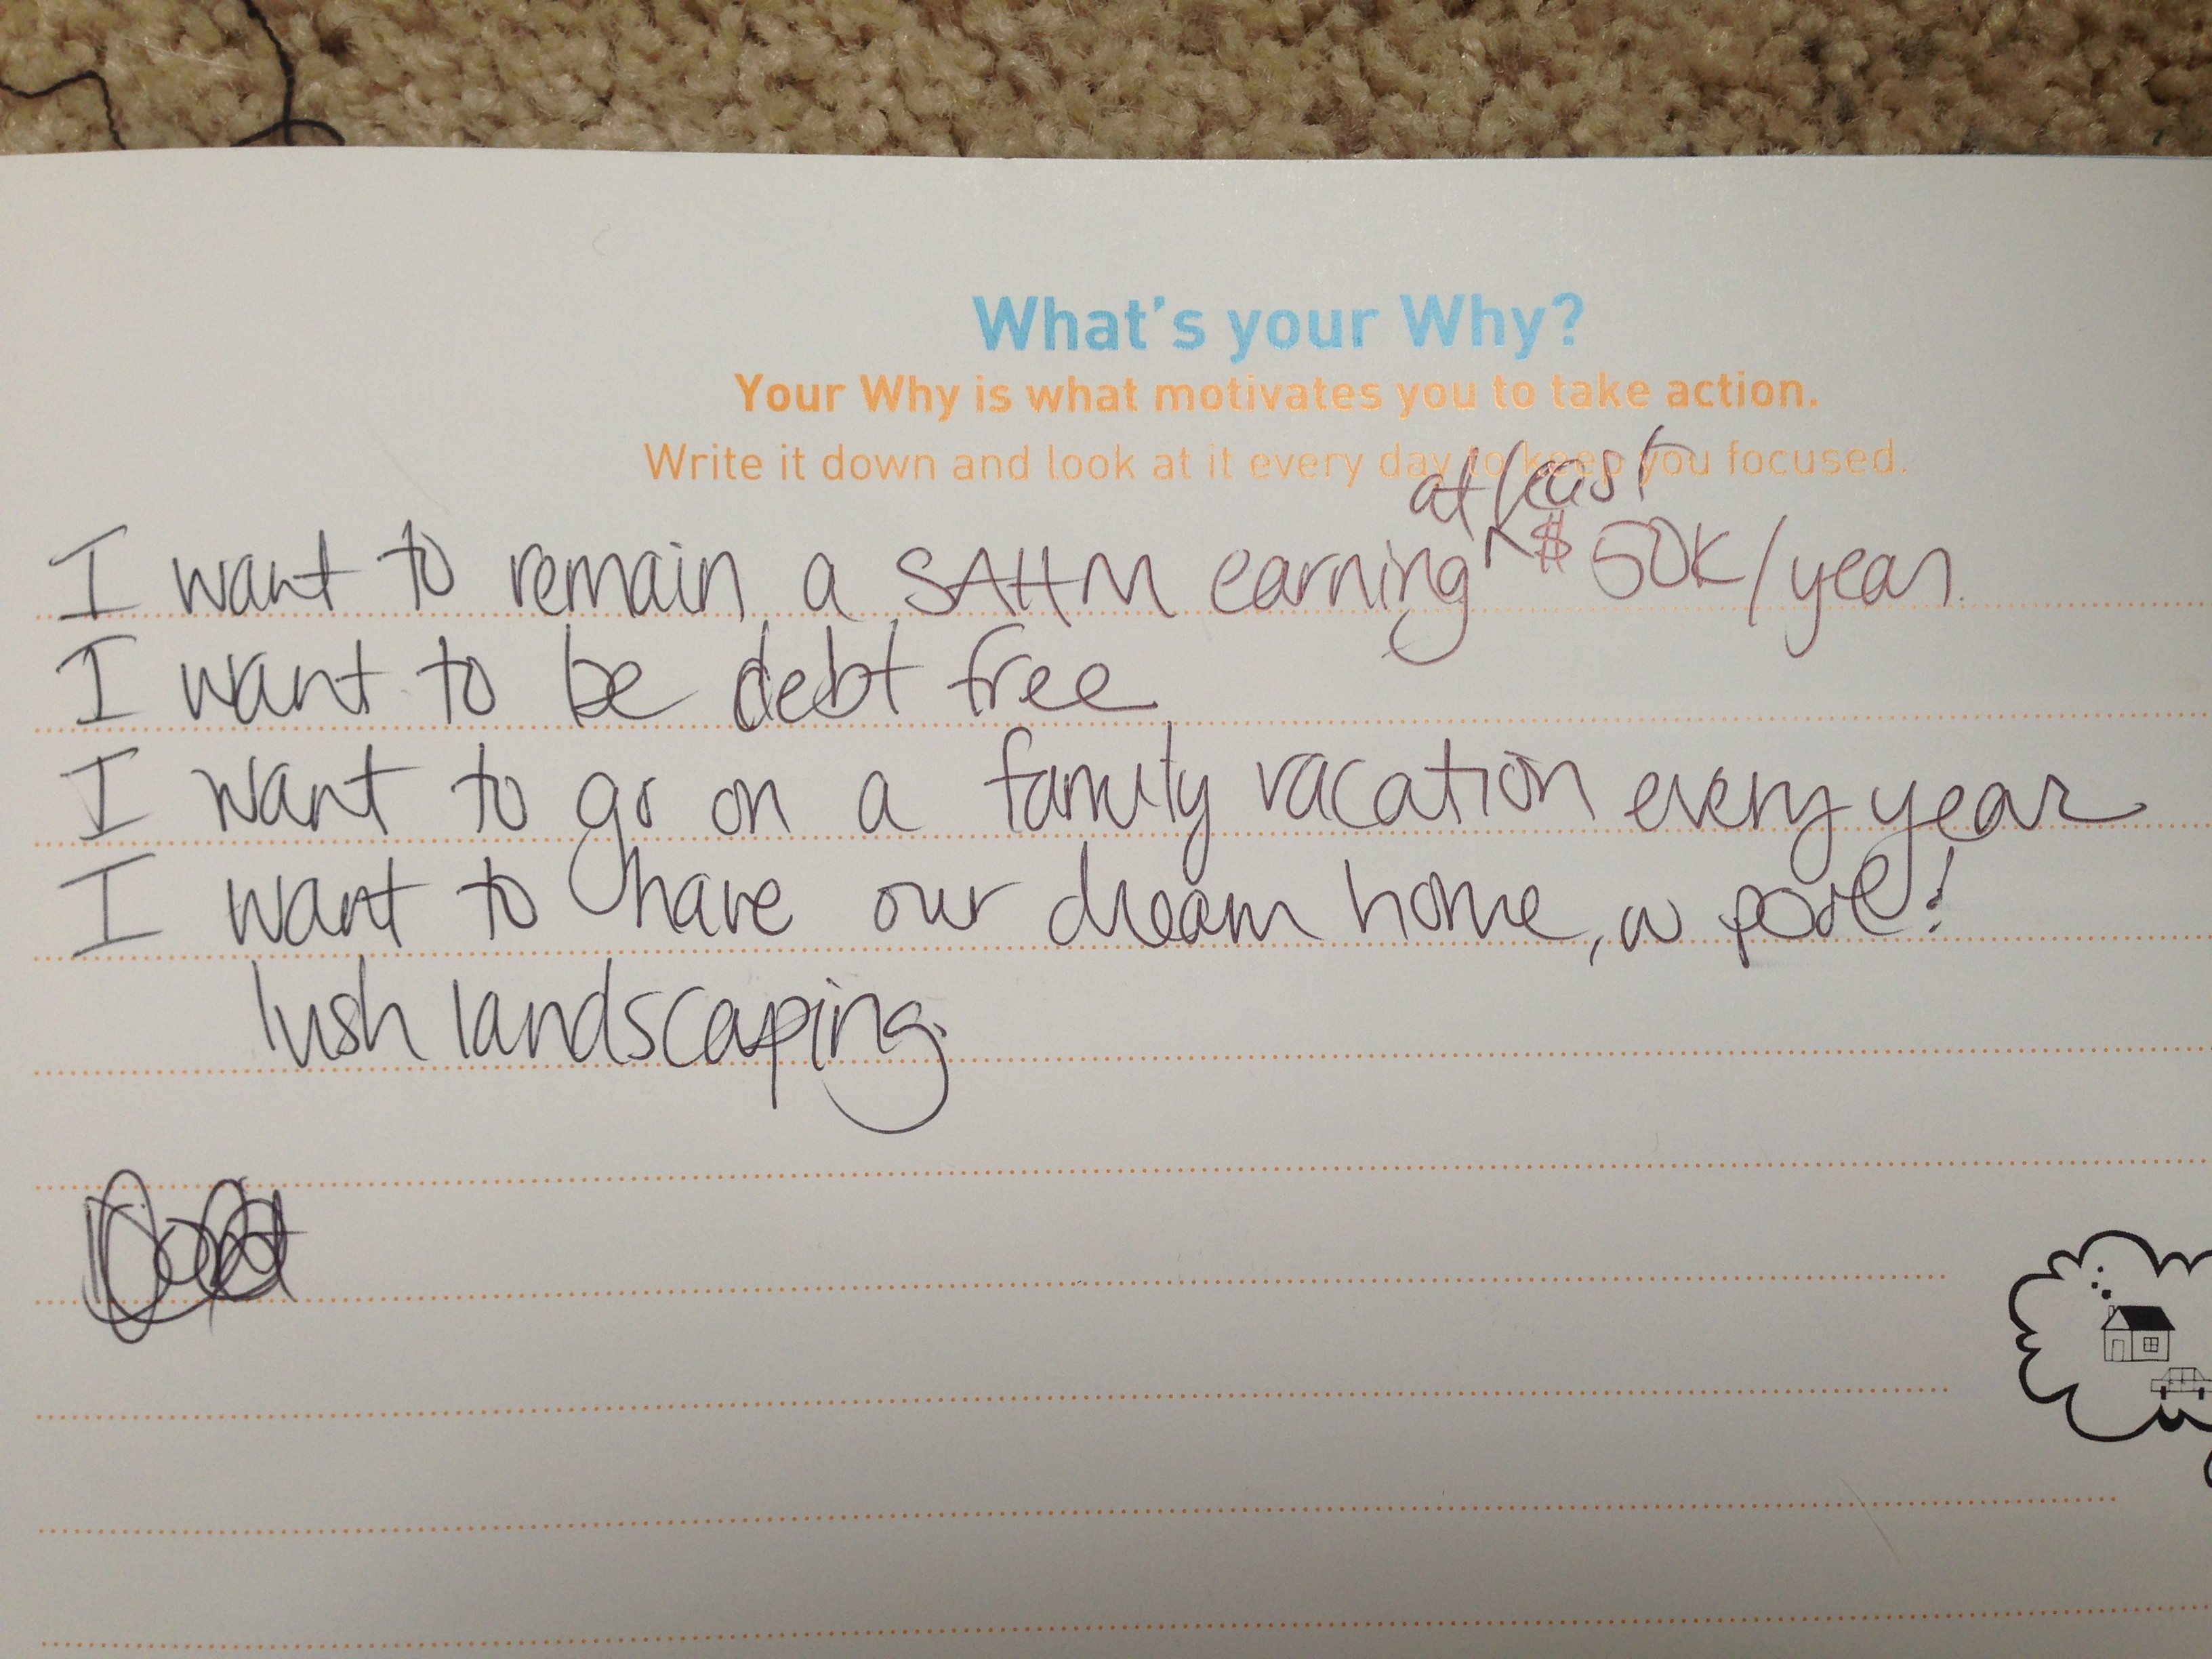 What's your Why?
Your Why is what motivates you to take action.
Write it down and look at it every day to keep you focused.
at least
I want to remain a SAHM earning $50K/year.
I want to be debt free
I want to go on a family vacation every year
I want to have our dream home, w pool!
lush landscaping.